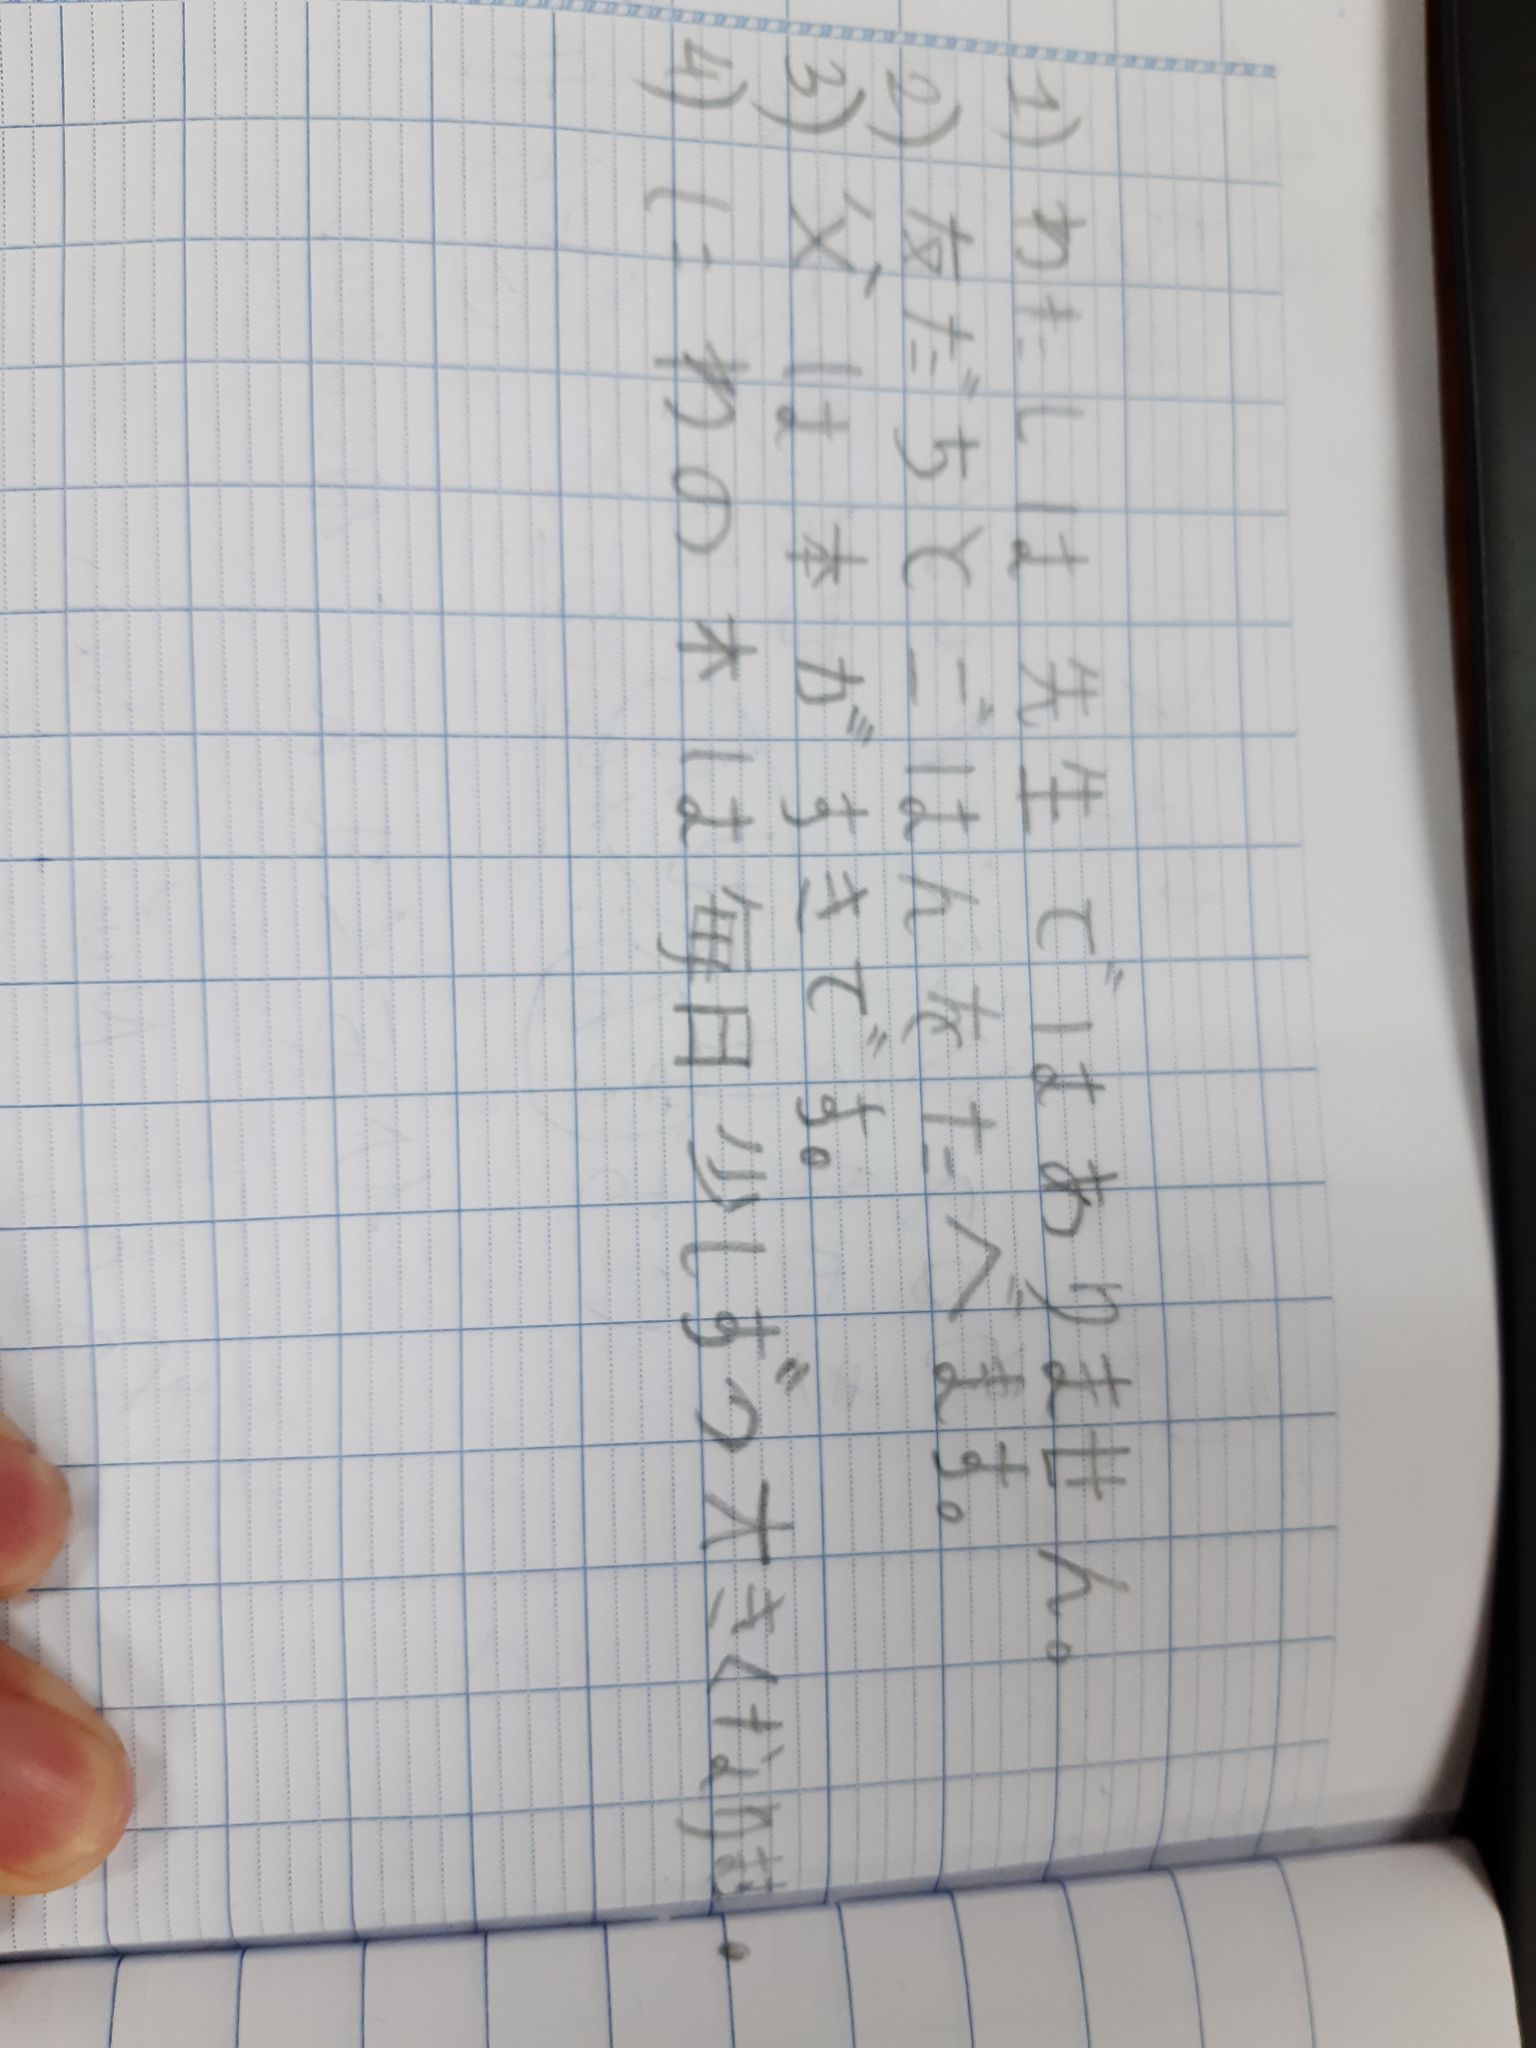 1) わたしは先生ではありません。
2) 友だちとごはんをたべます。
3) 父は本がすきです。
4) にわの木は毎日少しずつ大きくなります。